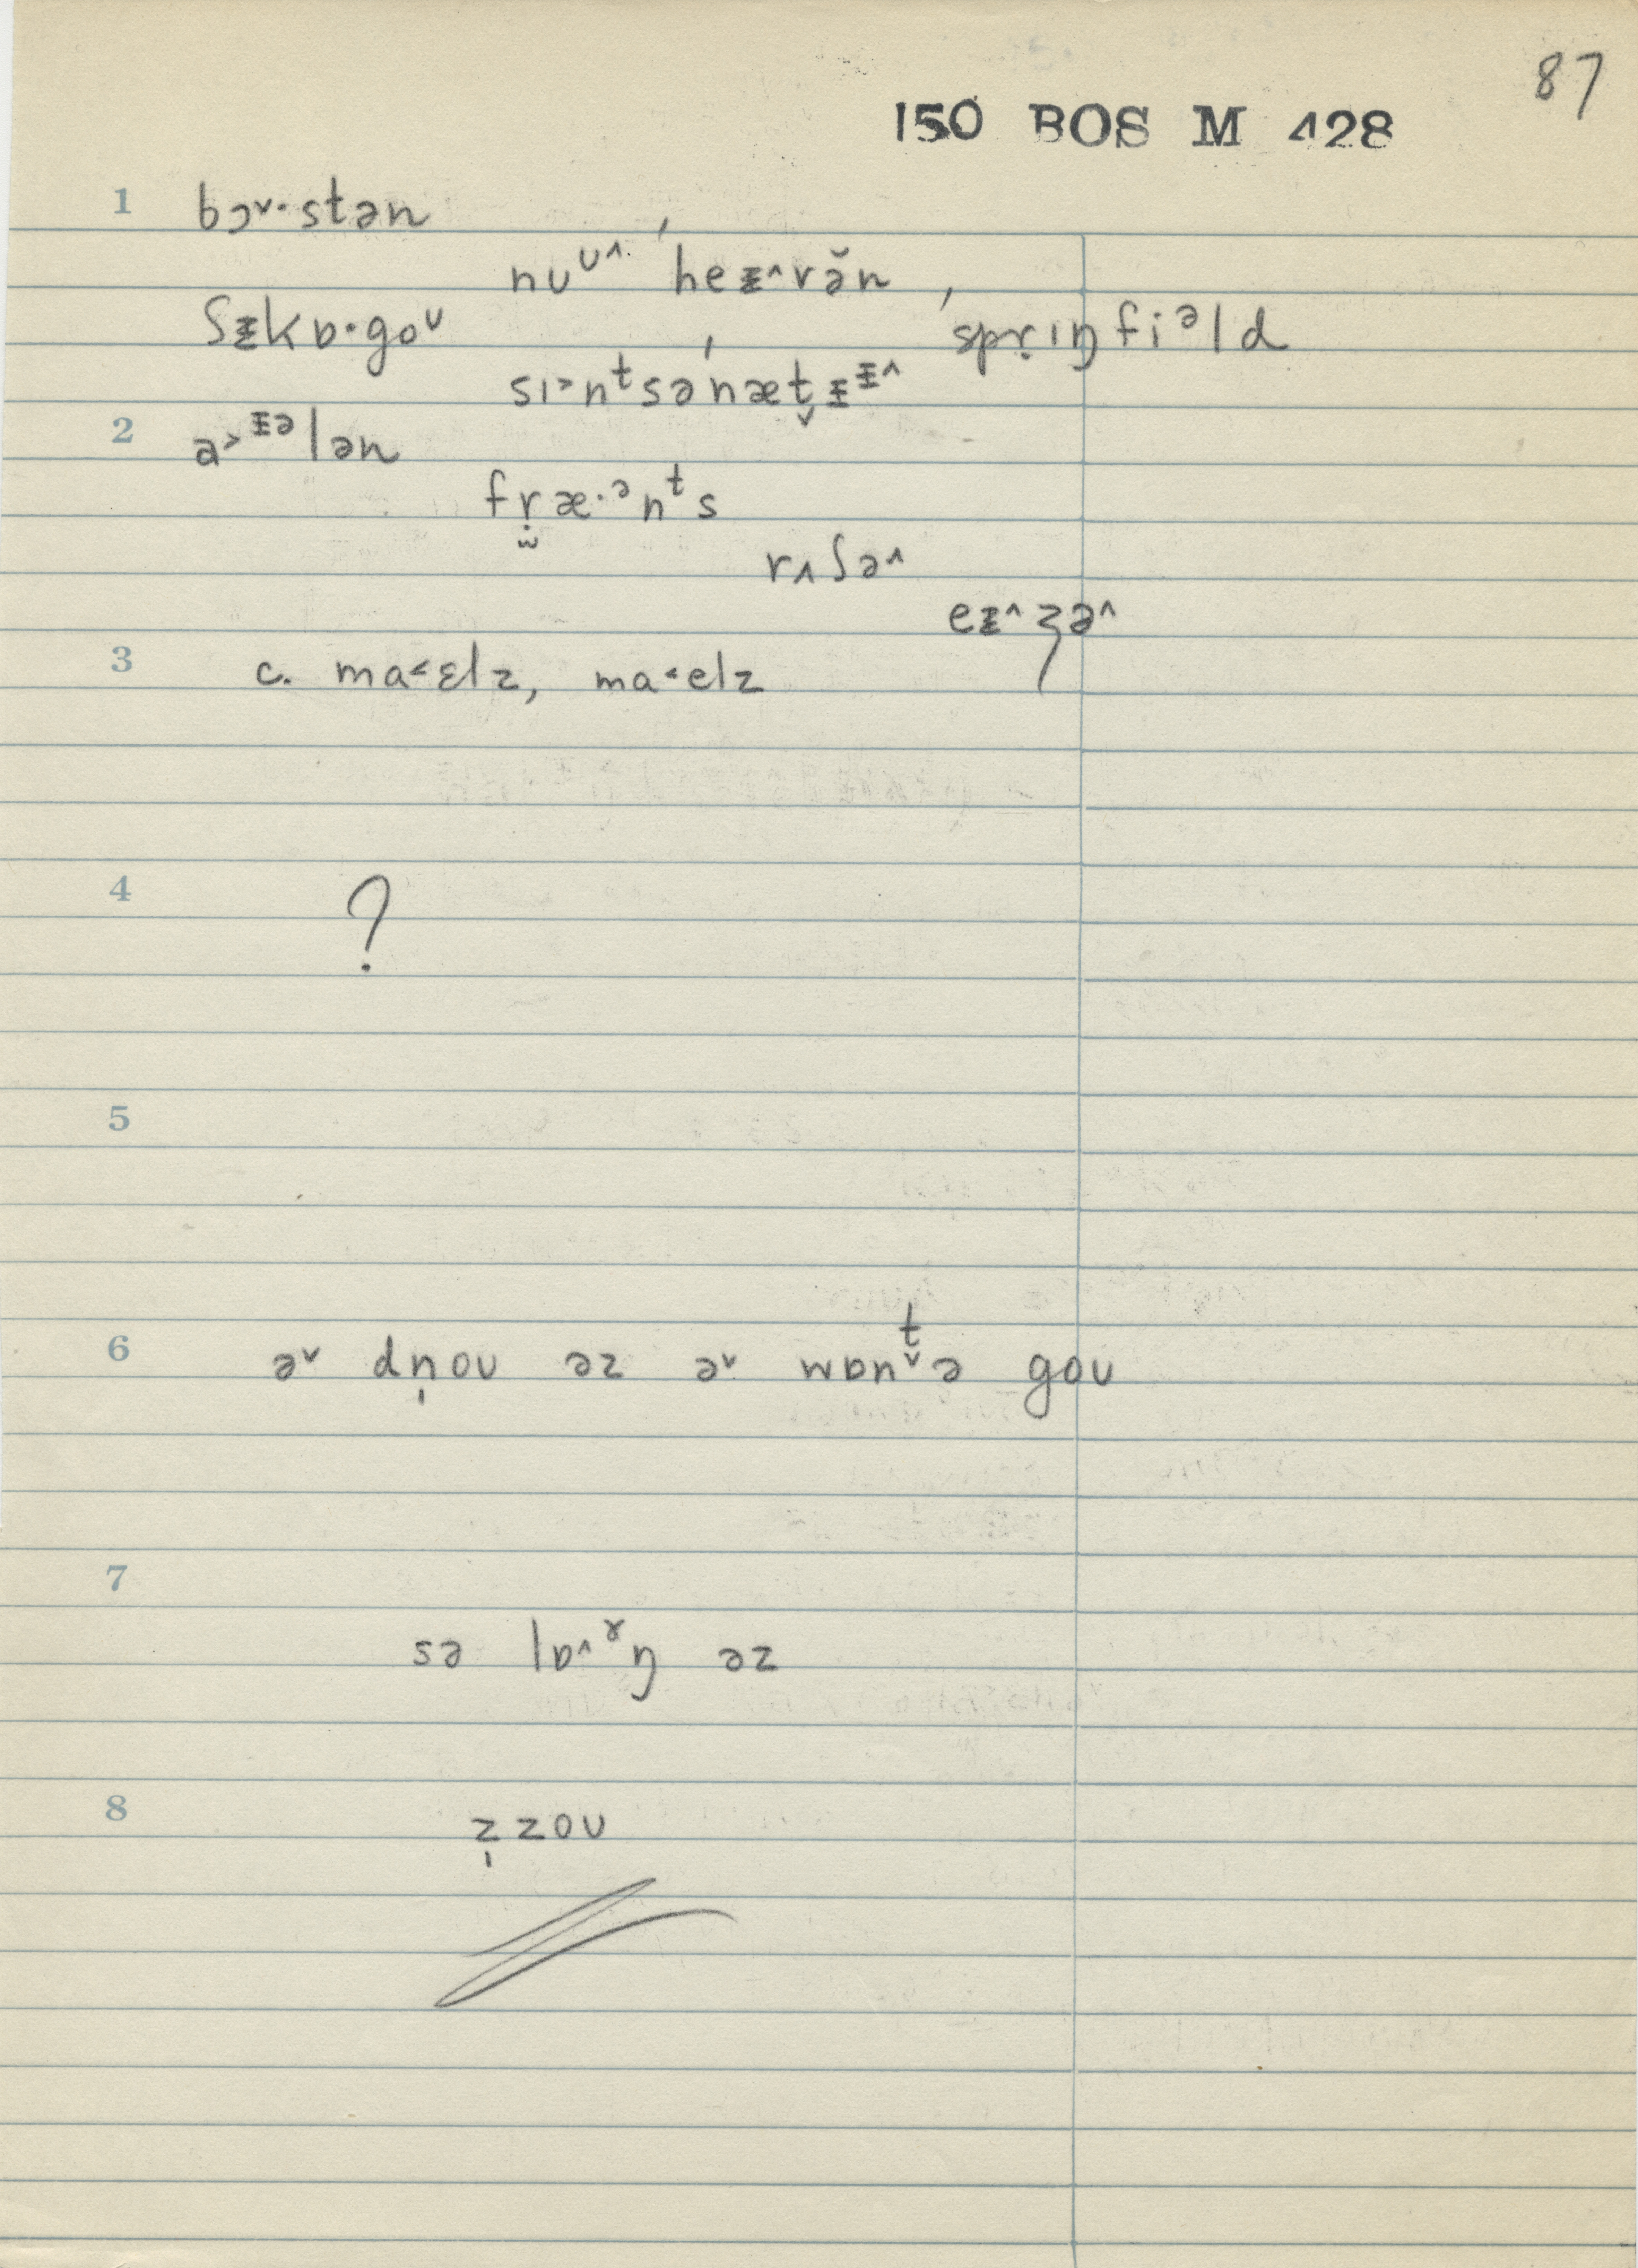 87
150 BOS M 428
1 bɔ˅·stən
nuᶷ˄· ˈheᵻ˄və̆n
ʃᵻkɒ·goᶷ ˈsprɪŋfiᵊld
sɪ˃nᵗsəˈnæt̬ᵻᵻ˄
2 a˃ᵻələn
fr̤æ·ᵊnᵗs
rʌʃə˄
eᵻ˄ʒə˄
3 c. ma˂ɛlz, ma˂elz
4 ?
5
6 ə˅ dn̩oʊ əz ə˅ wɒnᵗ̬ə goʊ
7
sə lɒ˄ˠŋ əz
8 z̩zoʊ